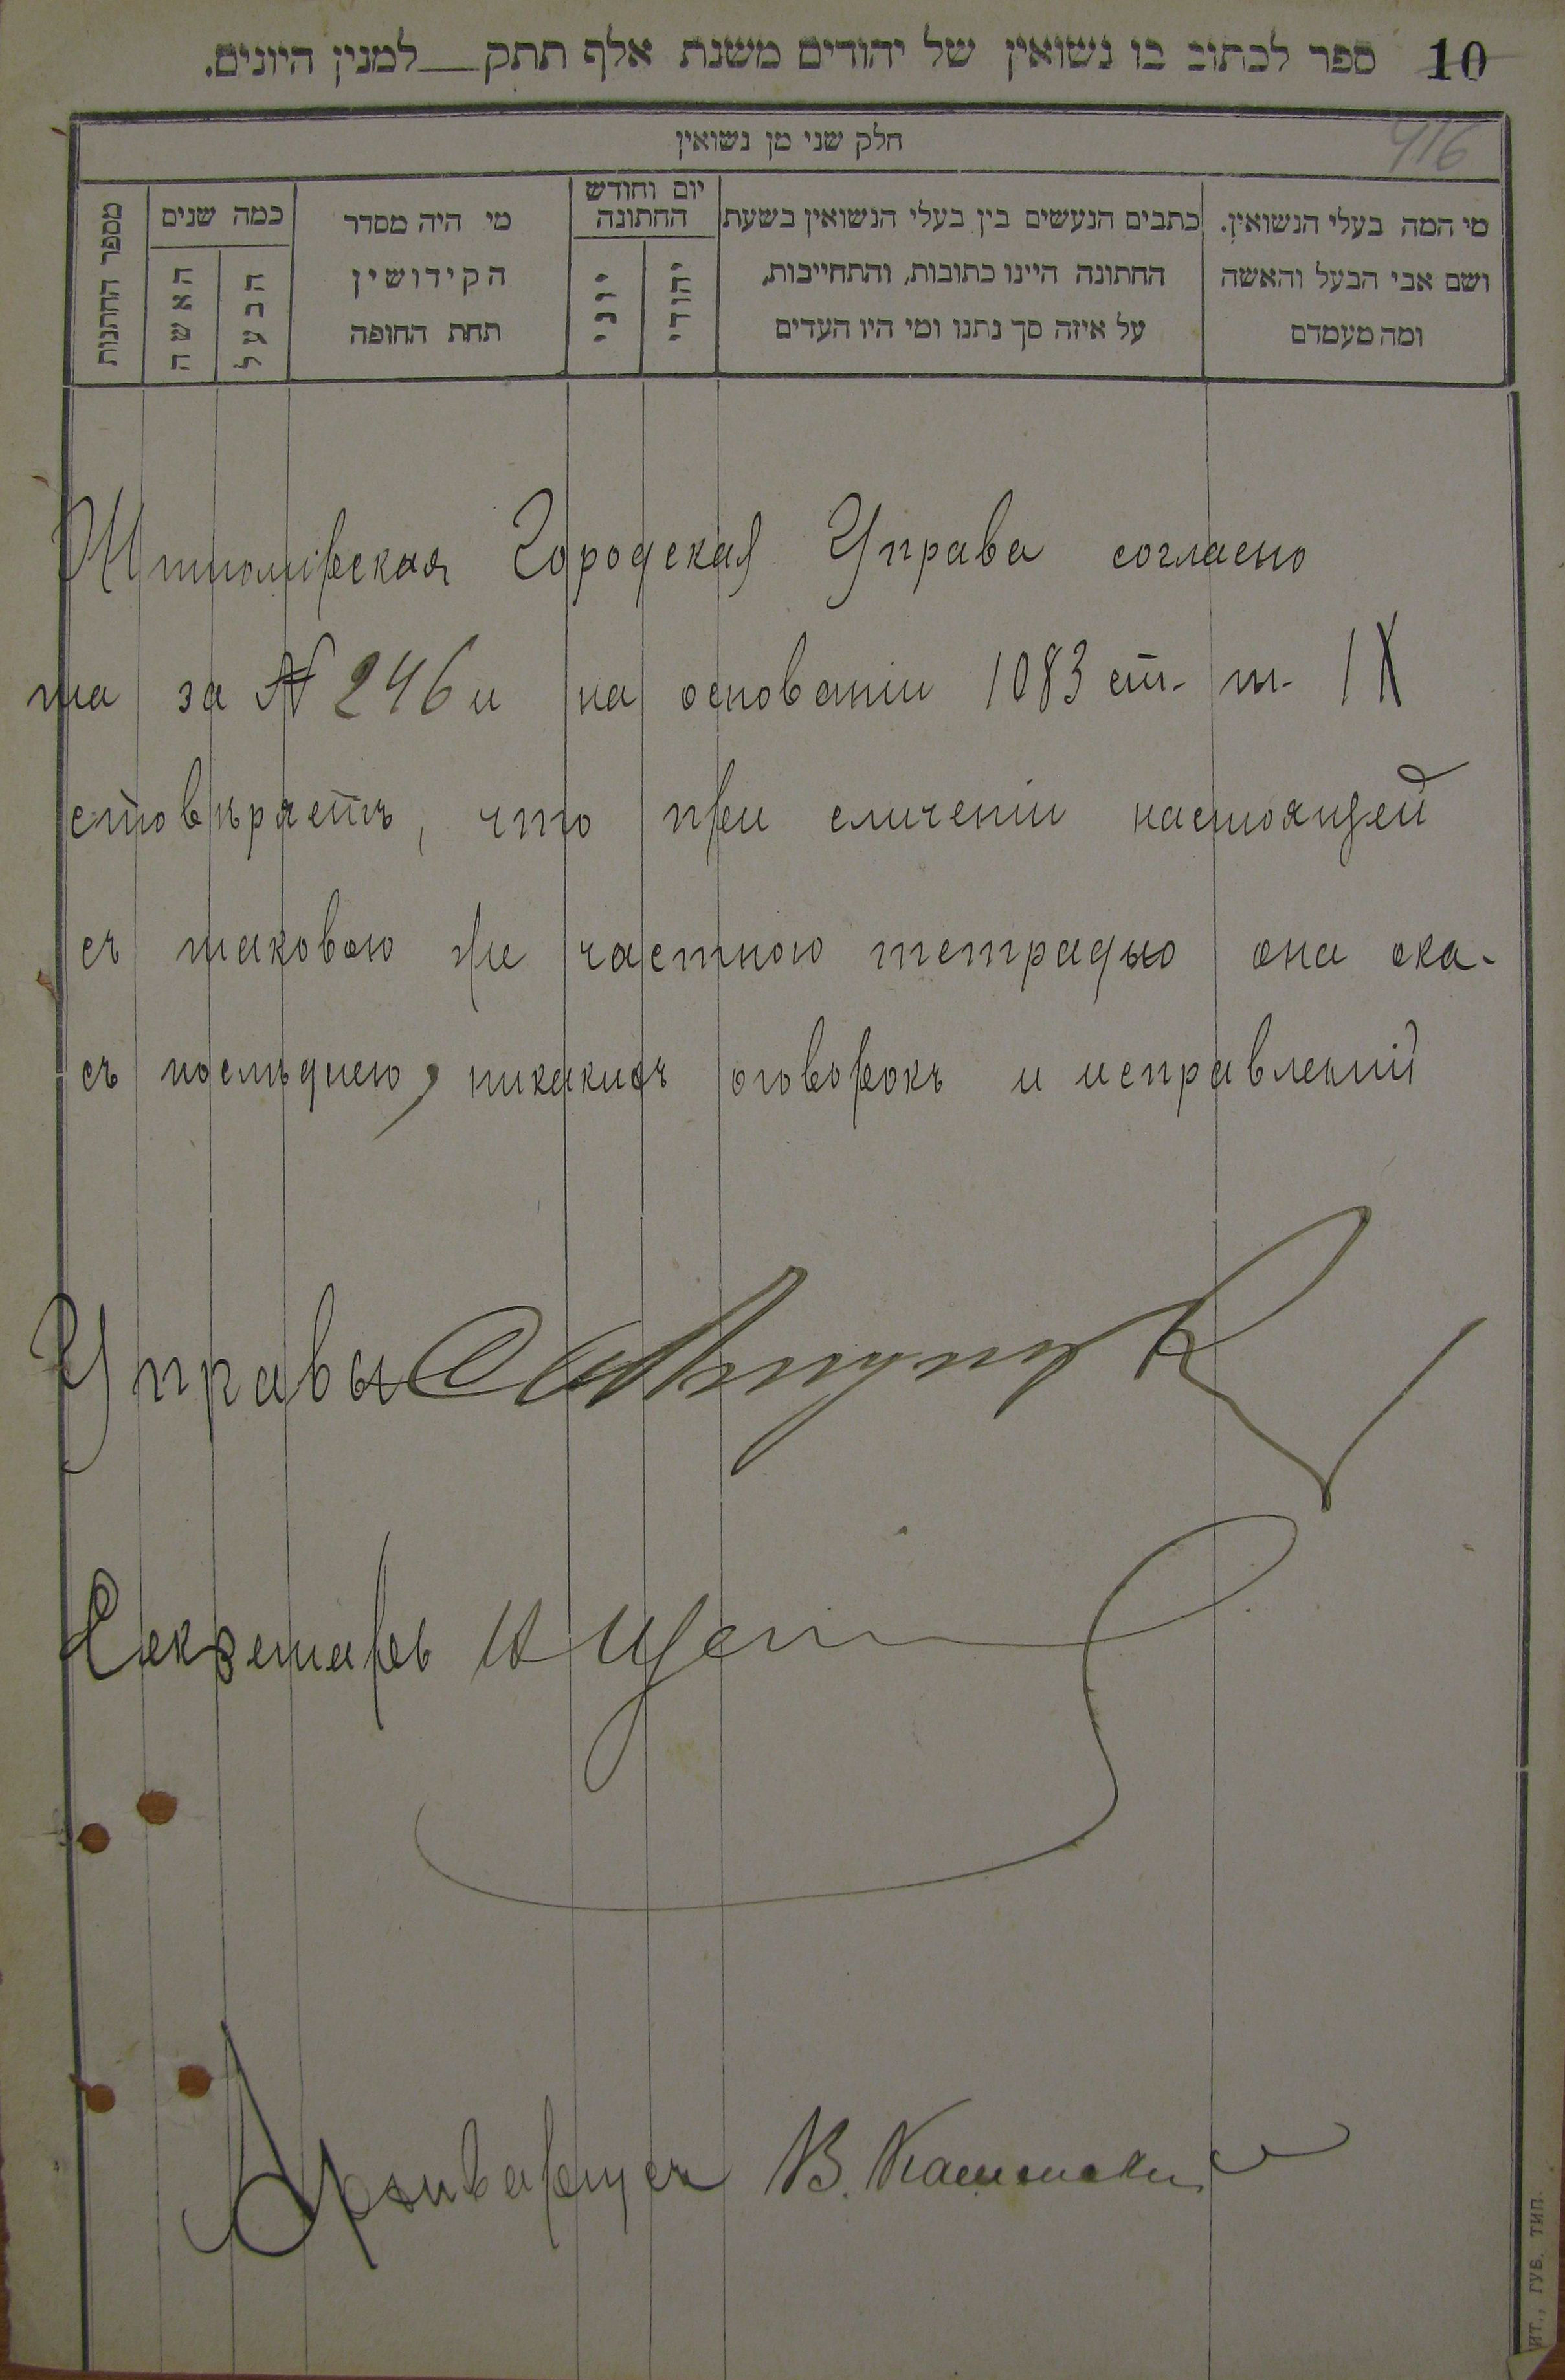 10 ספר לכתוב בו נשואין של יהודים משנת אלף תתק__למנין היונים.
416
חלק שני מן נשואין
מי המה בעלי הנשואין.
ושם אבי הבעל והאשה
ומה מעמדם
כתבים הנעשים בין בעלי הנשואין בשעת
החתונה היינו כתובות, והתחייבות,
על איזה סך נתנו ומי היו העדים
יום וחודש
החתונה
יהודי
יוני
מי היה מסדר
הקידושין
תחת החופה
כמה שנים
הבעל
האשה
מספר החתנות
Житомірская Городская Управа согласно
та за № 246 и на основаніи 1083 ст. т. IX
стовѣряетъ, что при сличеніи настоящей
съ таковою же частною тетрадью она ока-
съ послѣднею, никакихъ оговорокъ и исправленій
Управы
Секретарь
Архиваріусъ В.
ИТ., ГУБ. ТИП.